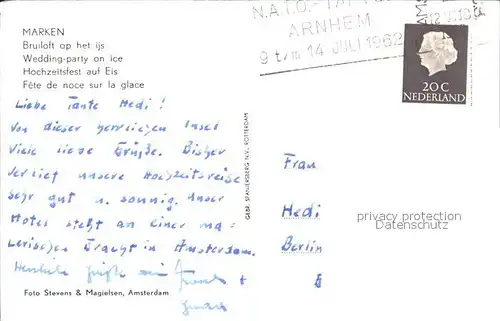 MARKEN
Bruiloft op het ijs
Wedding-party on ice
Hochzeitsfest auf Eis
Fête de noce sur la glace
Liebe Tante Hedi!
Von dieser herrlichen Insel
viele liebe Grüße. Bisher
verlief unsere Hochzeitsreise
sehr gut u. sonnig. Unser
Hotel steht an einer ma=
lerischen Gracht in Amsterdam.
Foto Stevens & Magielsen, Amsterdam
GEBR. SPANJERSBERG N.V., ROTTERDAM
N.A.T.O.-TAPTOE
ARNHEM
9 t/m 14 JULI 1962
20 C
NEDERLAND
Frau
Hedi
Berlin
protection privacy
Datenschutz